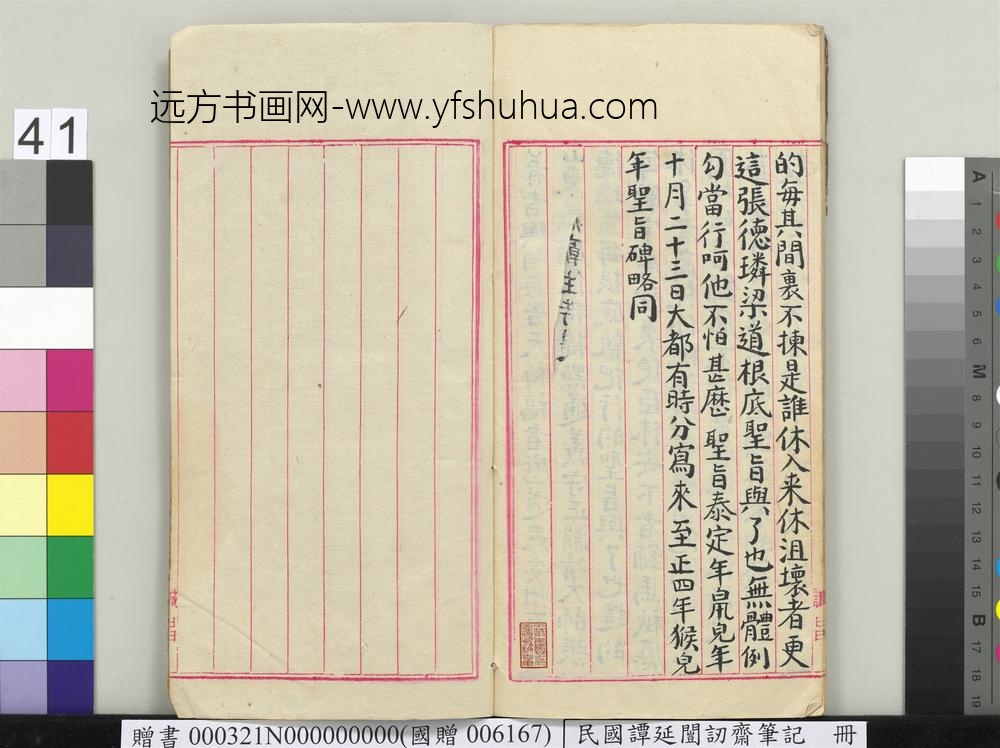 远方书画网-www.yfshuhua.com
41
的每其間裏不揀是誰休入来休沮壞者更
這張德璘梁道根底聖旨與了也無體例
勾當行呵他不怕甚麽 聖旨泰定年鼠兒年
十月二十三日大都有時分寫來 至正四年猴兒
年聖旨碑略同
A 1 2 3 4 5 6 M 8 9 10 11 12 13 14 15 B 17 18 19
贈書 000321N000000000(國贈 006167)
民國譚延闓訒齋筆記 冊